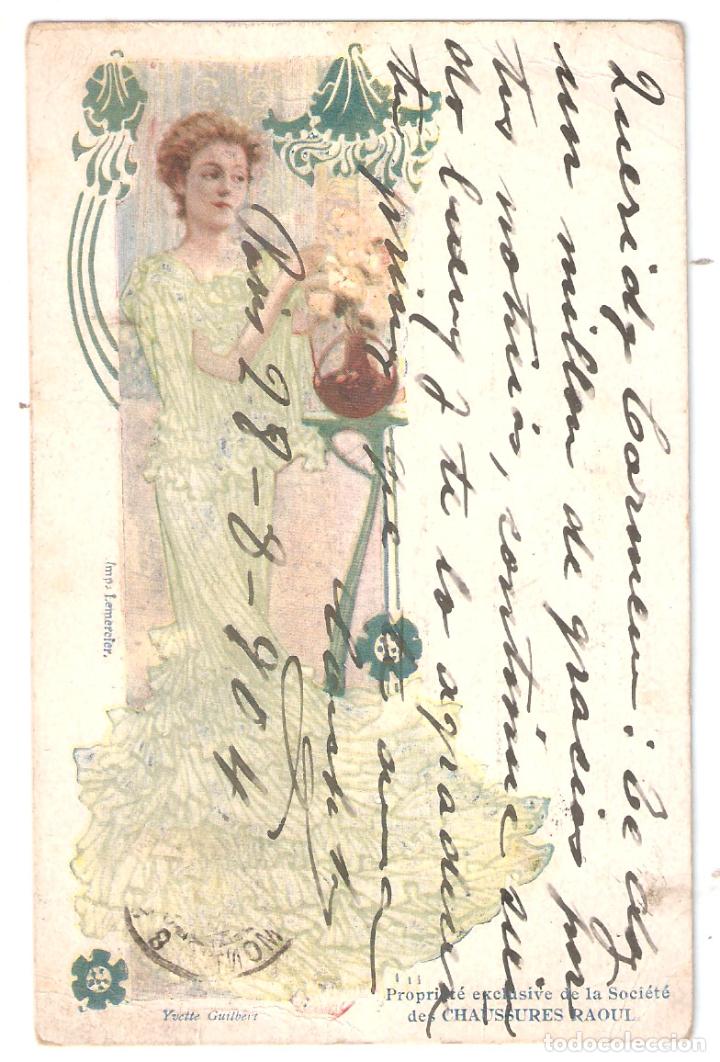 Querida Carmen: Te doy
un millon de gracias por
tus noticias, continúe sien
do buena y te lo agradecerá
tu primo que te ama
Paris 28-8-904
Imp: Lemercier.
Yvette Guilbert
Propriété exclusive de la Société
des CHAUSSURES RAOUL.
todocoleccion